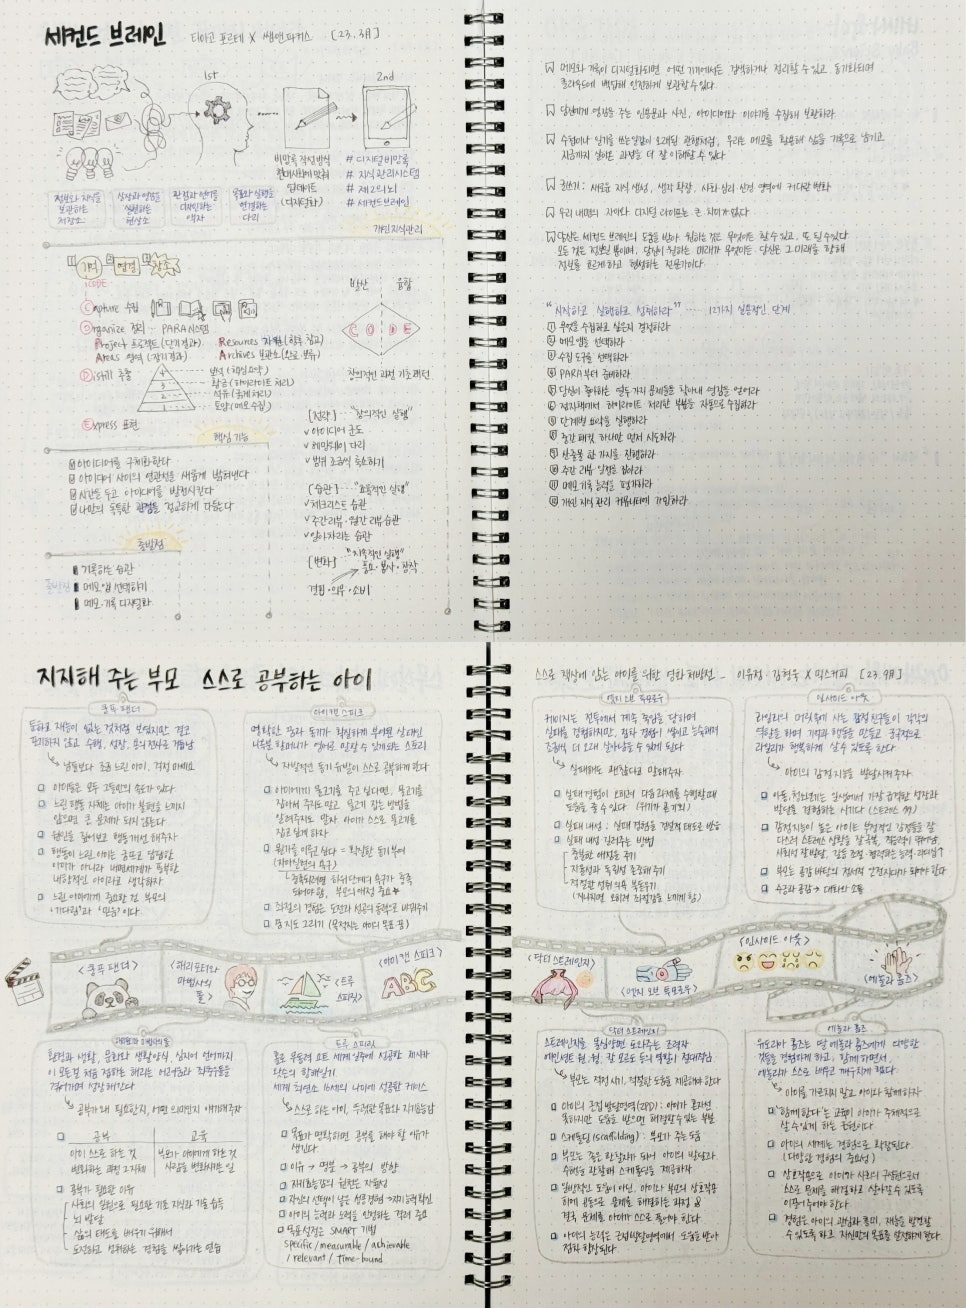 세컨드 브레인 티아고 포르테 X 쌤앤파커스 [23. 3月]
1st
2nd
비망록 작성 방식
컴퓨터 시대에 맞춰
업데이트
(디지털화)
# 디지털 비망록
# 지식관리시스템
# 제2의 뇌
# 세컨드브레인
정보와 지식을
보관하는
저장소
상상과 영감을
실현하는
현상소
관점과 언어를
디자인하는
액자
목표와 실행을
연결하는
다리
개인지식관리
1 기억 2 연결 3 창조
CODE
Capture 수집
Organize 정리 … PARA 시스템
Project 프로젝트(단기결과) Resources 자원(향후 참고)
Areas 영역(장기결과) Archives 보관소(완료·보류)
Distill 추출
4 3 2 1
보석(핵심요약)
황금(하이라이트 처리)
석유(굵게처리)
토양(메모 수집)
Express 표현
발산 | 융합
CODE
창의적인 과정 기초패턴
핵심 기능
아이디어를 구체화한다
아이디어 사이의 연관성을 새롭게 밝혀낸다
시간을 두고 아이디어를 발전시킨다
나만의 독특한 관점을 정교하게 다듬는다
[전략] … "창의적인 실행"
✓ 아이디어 군도
✓ 헤밍웨이 다리
✓ 범위 조금씩 축소하기
[습관] … "효율적인 실행"
✓ 체크리스트 습관
✓ 주간리뷰·월간 리뷰 습관
✓ 알아차리는 습관
[변화] … "지속적인 실행"
풍요·봉사·창작
결핍·의무·소비
출발점
기록하는 습관
메모앱 선택하기
메모·기록 디지털화
메모와 기록이 디지털화되면 어떤 기기에서든 검색하거나 정리할 수 있고, 동기화되며
클라우드에 백업해 안전하게 보관할 수 있다.
당신에게 영감을 주는 인용문과 사진, 아이디어와 이야기를 수집해 보관하라
우리는 메모를 활용해 삶을 기록으로 남기고,
지금까지 살아온 과정을 더 잘 이해할 수 있다
글쓰기 : 새로운 지식 생성, 생각 확장, 사회·심리·신경 영역에 커다란 변화
우리 내면의 자아와 디지털 라이프는 큰 차이가 없다
당신은 세컨드 브레인의 도움을 받아 원하는 것은 무엇이든 할 수 있고, 또 될 수 있다
모든 것은 정보일 뿐이며, 당신이 원하는 미래가 무엇이든 당신은 그 미래를 향해
정보를 흐르게 하고 형성하는 전문가이다.
"시작하고 실행하고 성취하라" …… 12가지 실용적인 단계
① 무엇을 수집하고 싶은지 결정하라
② 메모 앱을 선택하라
③ 수집 도구를 선택하라
④ PARA부터 준비하라
⑤ 당신이 좋아하는 열두 가지 문제들을 찾아내 영감을 얻어라
⑥ 전자책에서 하이라이트 처리한 부분을 자동으로 수집하라
⑦ 단계별 요약을 실행하라
⑧ 중간 패킷 하나만 먼저 시도하라
⑨ 산출물 한 가지를 진행하라
⑩ 주간 리뷰 일정을 잡아라
⑪ 메모 기록 능력을 평가하라
⑫ 개인 지식 관리 커뮤니티에 가입하라
지지해 주는 부모 스스로 공부하는 아이
스스로 책상에 앉는 아이를 위한 영화 처방전_ 이유정·김형욱 X 믹스커피 [23. 9月]
쿵푸팬더
포기하지 않고 수행, 성장, 포의 전사로 거듭남
남들보다 조금 느린 아이, 걱정 마세요
아이들은 모두 고유만의 속도가 있다
느린 행동 자체는 아이가 불편을 느끼지
않으면 큰 문제가 되지 않는다
원인을 짚어보고 행동개선 해주자
행동이 느린 아이는 굼뜨고 답답한
아이가 아니라 내면세계가 풍부한
내향적인 아이라고 생각하자
느린 아이에게 중요한 건 부모의
'기다림'과 '믿음'이다.
아이 캔 스피크
자발적인 동기유발이 스스로 공부하게 한다
아이에게 물고기를 주고 싶다면, 물고기를
잡아서 주지도 말고 물고기 잡는 방법을
알려주지도 말자. 아이가 스스로 물고기를
잡고 싶게 하자
뭔가를 이루고 보자 = 확실한 동기부여
(자아실현의 욕구)
충족되려면 하위단계의 욕구가 충족
되어야 함, 부모의 애정 중요★
좌절의 경험은 도전과 성공의 동력으로 바꿔주기
꿈 지도 그리기 (목적지는 아이의 목표·꿈)
엣지 오브 투모로우
케이지는 전투에서 계속 죽임을 당하며
실패를 경험하지만, 점차 경험이 쌓이고 능숙해져
조금씩 더 오래 살아남을 수 있게 된다
실패해도 괜찮다고 말해주자
실패 경험이 오히려 다음 과제를 수행할 때
도움을 줄 수 있다 (위기가 곧 기회)
실패 내성 : 실패 경험을 건설적 태도로 반응
실패 내성 길러주는 방법
충분한 애정을 주기
자율성과 독립성 존중해주기
적절한 성취의 욕구 북돋우기
(지나치면 오히려 좌절감을 느끼게 함)
인사이드 아웃
라일리의 머릿속에 사는 감정 친구들이 각각의
역할을 하며 기억과 행동을 만들고 궁극적으로
라일리가 행복하게 살 수 있도록 한다
아이의 감정지능을 발달시켜주자
아동, 청소년기는 일생에서 가장 급격한 성장과
발달을 경험하는 시기다 (스트레스 ↑↑)
감정지능이 높은 아이는 부정적인 감정들을 잘
다스려 스트레스 상황을 잘 극복, 적응력이 뛰어남,
사회성 잘 발달, 갈등 조절·협력하는 능력·리더십↑
부모는 공감 바탕의 정서적 안전지대가 돼야 한다
수긍과 공감 → 대화의 흐름
<쿵푸 팬더>
<해리포터와
마법사의
돌>
<트루
스피릿>
<아이 캔 스피크>
ABC
<닥터 스트레인지>
<엣지 오브 투모로우>
<인사이드 아웃>
<에놀라 홈즈>
해리포터와 마법사의돌
환경과 생활, 문화와 생활양식, 심지어 언어까지
이 모든 것 처음 접하는 해리는 어려움과 좌충우돌을
겪어가며 성장해간다
공부가 왜 필요한지, 어떤 의미인지 얘기해주자
공부 | 교육
아이 스스로 하는 것 | 부모가 아이에게 하는 것
변화하는 과정 그 자체 | 사람을 변화시키는 일
공부가 필요한 이유
사회의 일원으로 필요한 기초 지식과 기술 습득
뇌 발달
삶의 태도를 배우기 위해서
도전하고 성취하는 경험을 쌓아가는 연습
트루 스피릿
홀로 무동력 요트 세계일주에 성공한 제시카
왓슨의 항해일기
세계 최연소 16세의 나이에 성공한 케이스
스스로 하는 아이, 뚜렷한 목표와 자기효능감
목표가 명확하면 공부를 해야 할 이유가
생긴다
이유 → 명분 → 공부의 방향
자기효능감의 원천은 자율성
자신의 선택이 낳은 성공경험 → 자기 능력 확신
아이의 능력과 노력을 인정하는 격려 중요
목표설정은 SMART 기법
specific / measurable / achievable
/ relevant / time-bound
닥터 스트레인지
스트레인지를 물심양면 도와주는 조력자
에인션트 원, 웡, 칼 모르도 등의 역할이 절대적임
부모는 적정 시기, 적절한 도움을 제공해야 한다
아이의 근접 발달영역(ZPD) : 아이가 혼자선
못하지만 도움을 받으면 해결할 수 있는 부분
스캐폴딩(scaffolding) : 부모가 주는 도움
부모는 좋은 관찰자가 되어 아이의 발달과
수행을 관찰해 스캐폴딩을 제공하자
일방적인 도움이 아닌, 아이와 부모의 상호작용
하며 공동으로 문제를 해결하는 과정 &
결국 문제를 아이가 스스로 풀어야 한다
아이의 능력은 근접발달영역에서 도움을 받아
점차 확장된다.
에놀라 홈즈
유도리아 홈즈는 딸 에놀라 홈즈에게 다양한
것들을 경험하게 하고, 함께 하면서,
에놀라가 스스로 배우고 깨우치게 했다.
아이를 가르치지 말고 아이와 함께하자
'함께 한다'는 교육이 아이가 주체적으로
살 수 있게 하는 훈련이다
아이의 세계는 경험으로 확장된다.
(다양한 경험의 중요성)
상호작용으로 아이가 사회의 구성원으로서
스스로 문제를 해결하고 살아갈 수 있도록
이끌어 주어야 한다
경험은 아이의 관심과 흥미, 재능을 발견할
수 있도록 하고, 자신만의 목표를 설정하게 한다.